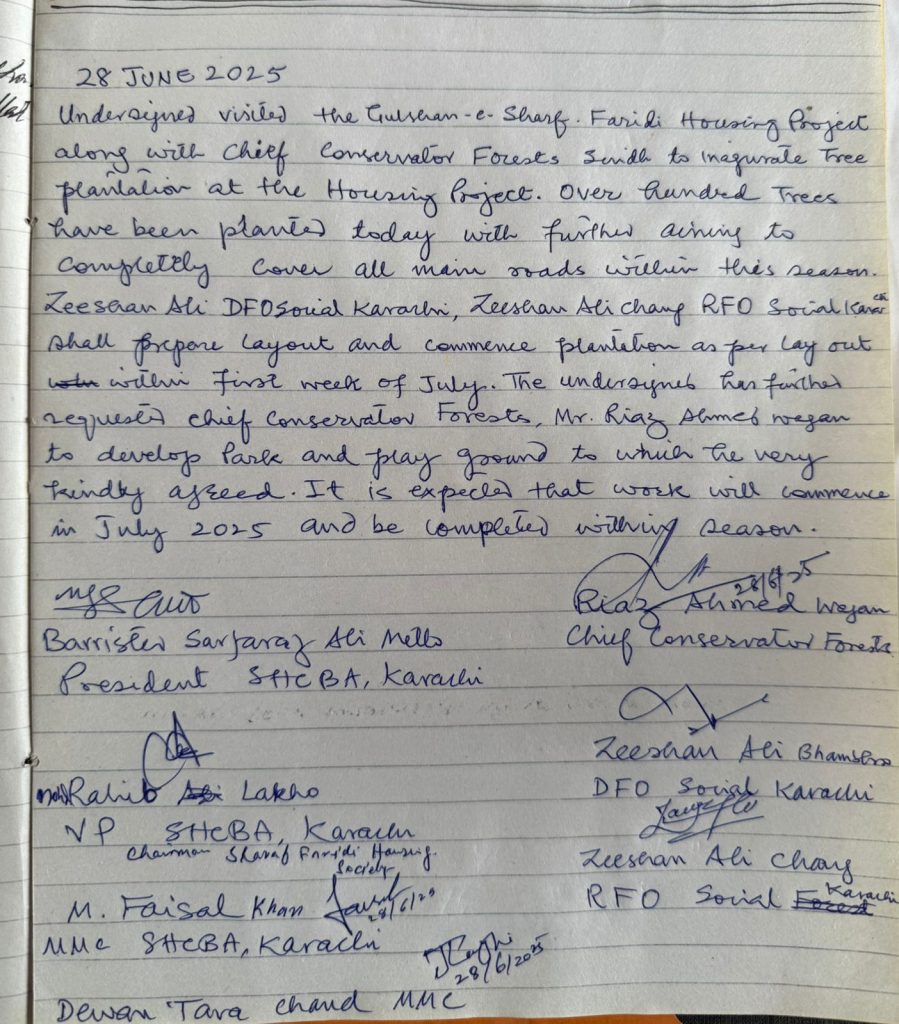 28 JUNE 2025
Undersigned visited the Gulshan-e-Sharf. Faridi Housing Project
along with Chief Conservator Forests Sindh to inagurate Tree
plantation at the Housing Project. Over hundred Trees
have been planted today with further aiming to
completely cover all main roads within this season.
Zeeshan Ali DFO Social Karachi, Zeeshan Ali Chang RFO Social Karachi
shall prepare layout and commence plantation as per lay out
within first week of July. The undersigned has further
requested Chief Conservator Forests, Mr. Riaz Ahmed wagan
to develop Park and play ground to which he very
kindly agreed. It is expected that work will commence
in July 2025 and be completed within season.
28/6/25
Riaz Ahmed Wagan
Barrister Sarfaraz Ali Metlo
Chief Conservator Forests
President SHCBA, Karachi
Zeeshan Ali
Rahib Lakho
DFO Social Karachi
VP SHCBA, Karachi
Chairman Sharaf Faridi Housing
Society
Zeeshan Ali Chang
M. Faisal Khan 28/6/25
RFO Social Karachi
MMC SHCBA, Karachi
28/6/2025
Dewan Tara Chand MMC